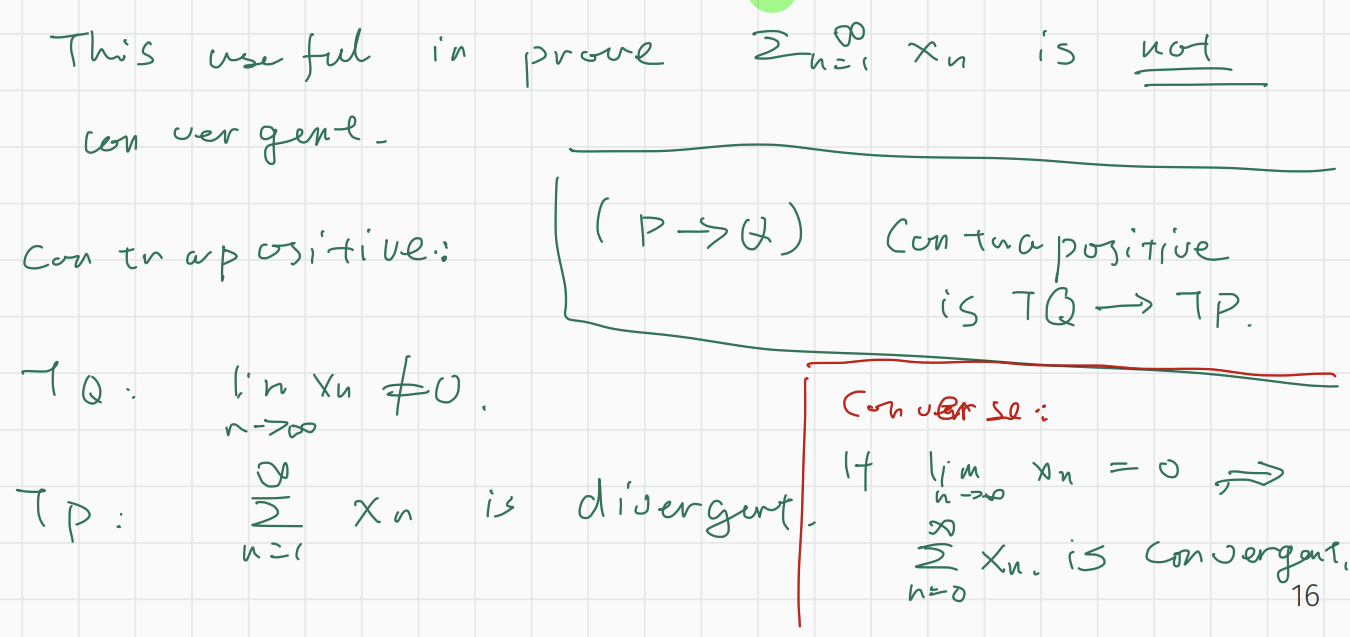 This useful in prove ∑_{n=1}^∞ x_n is not
convergent.
(P → Q) Contrapositive
is ¬Q → ¬P.
Contrapositive:
¬Q: lim_{n→∞} x_n ≠ 0.
¬P: ∑_{n=1}^∞ x_n is divergent.
Converse:
If lim_{n→∞} x_n = 0 ⇒
∑_{n=0}^∞ x_n. is convergent.
16